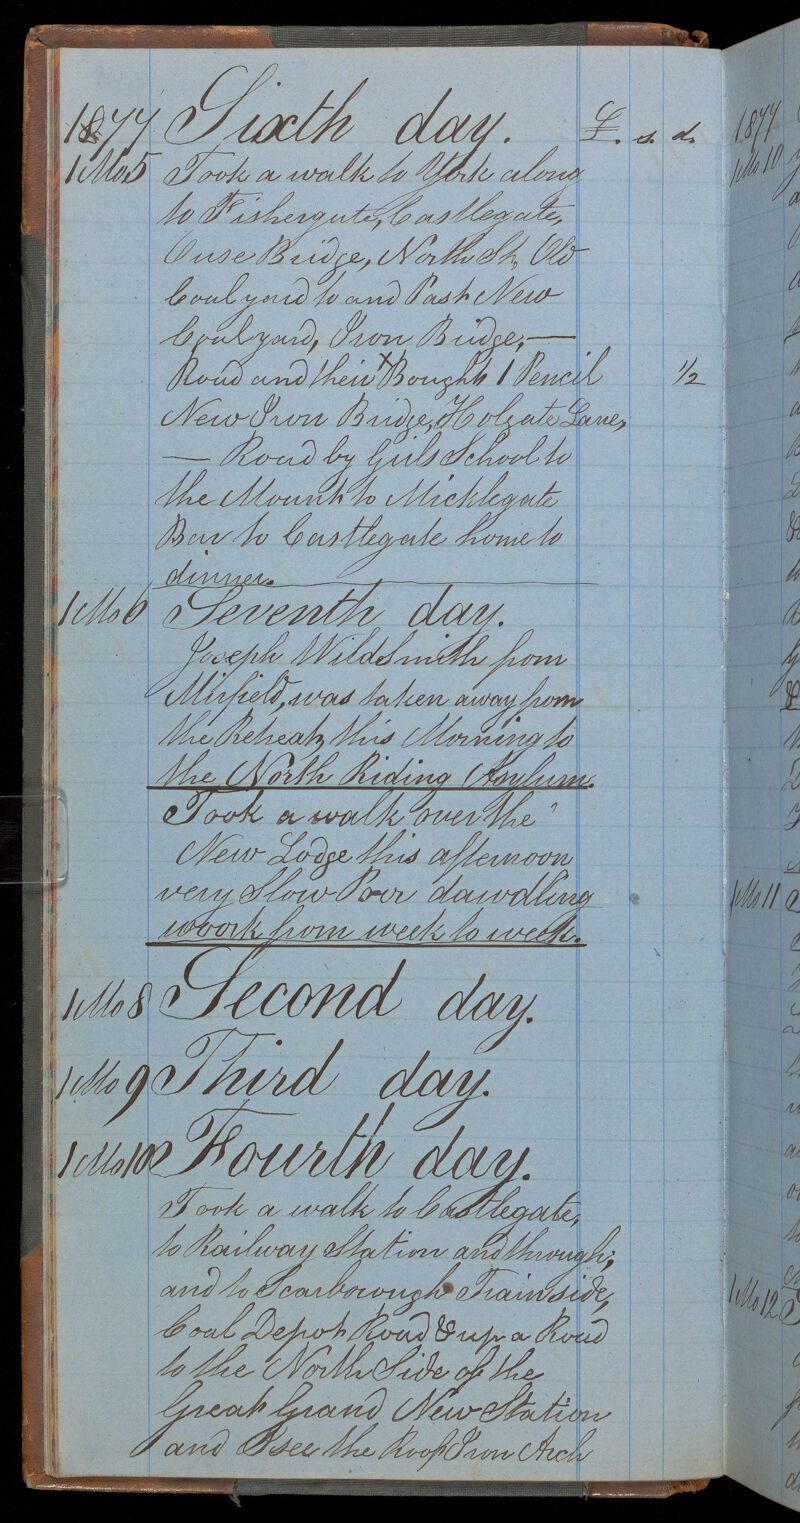 1877 Sixth day. £. s. d.
1 Mo 5 Took a walk to York along
to Fishergate, Castlegate,
Ouse Bridge, North St, Old
Coal yard to and Past New
Coal yard, Iron Bridge, —
Road and their x Bought 1 Pencil 1/2
New Iron Bridge, Holgate Lane,
— Road by Girls School to
the Mount to Micklegate
Bar to Castlegate home to
dinner.
1 Mo 6 Seventh day.
Joseph WildSmith from
Mirfield, was taken away from
the Retreat, this Morning to
the North Riding Asylum.
Took a walk over the
New Lodge this afternoon
very Slow Poor dawdling
woork from week to week.
1 Mo 8 Second day.
1 Mo 9 Third day.
1 Mo 10 Fourth day.
Took a walk to Castlegate,
to Railway Station and through;
and to Scarborough Train side,
Coal Depot Road & up a Road
to the North Side of the
Great Grand New Station
and I see the Roof Iron Arch
1877
1 Mo 10
1 Mo 11
1 Mo 12